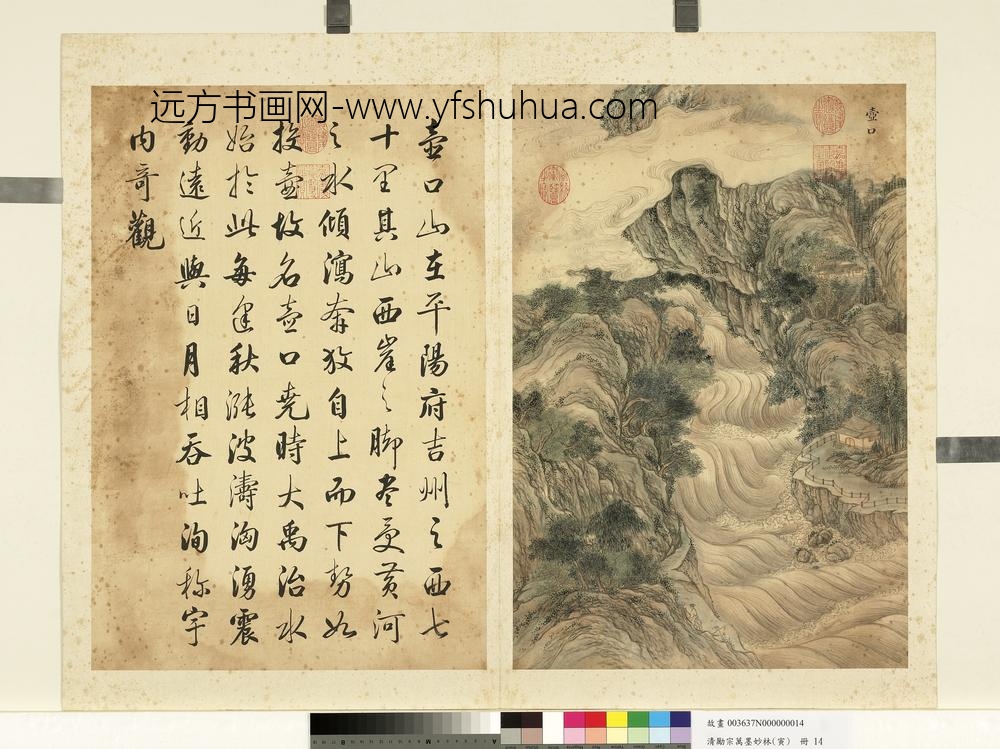 远方书画网-www.yfshuhua.com
壺口
壺口山在平陽府吉州之西七
十里其山西崖之脚盡受黃河
之水傾瀉奔放自上而下勢如
投壺故名壺口堯時大禹治水
始於此每逢秋漲波濤洶湧震
動遠近與日月相吞吐洵称宇
内奇觀
故畫 003637N000000014
清勵宗萬墨妙珠林(寅) 冊 14